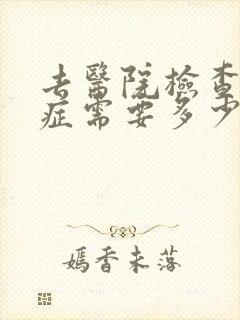 去醫院檢查
症需要多少
嫣香未落